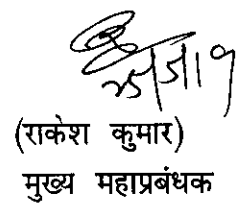 (राकेश कुमार)
मुख्य महाप्रबंधक